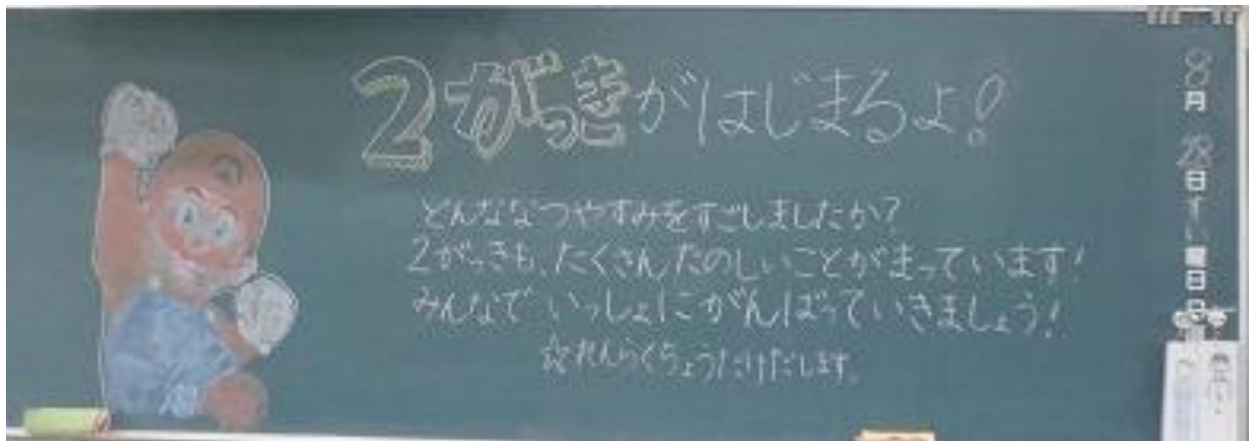 2がっきがはじまるよ!
どんななつやすみをすごしましたか?
2がっきも、たくさんたのしいことがまっています!
みんなでいっしょにがんばっていきましょう!
☆れんらくちょうだけだします。
8月28日すい曜日